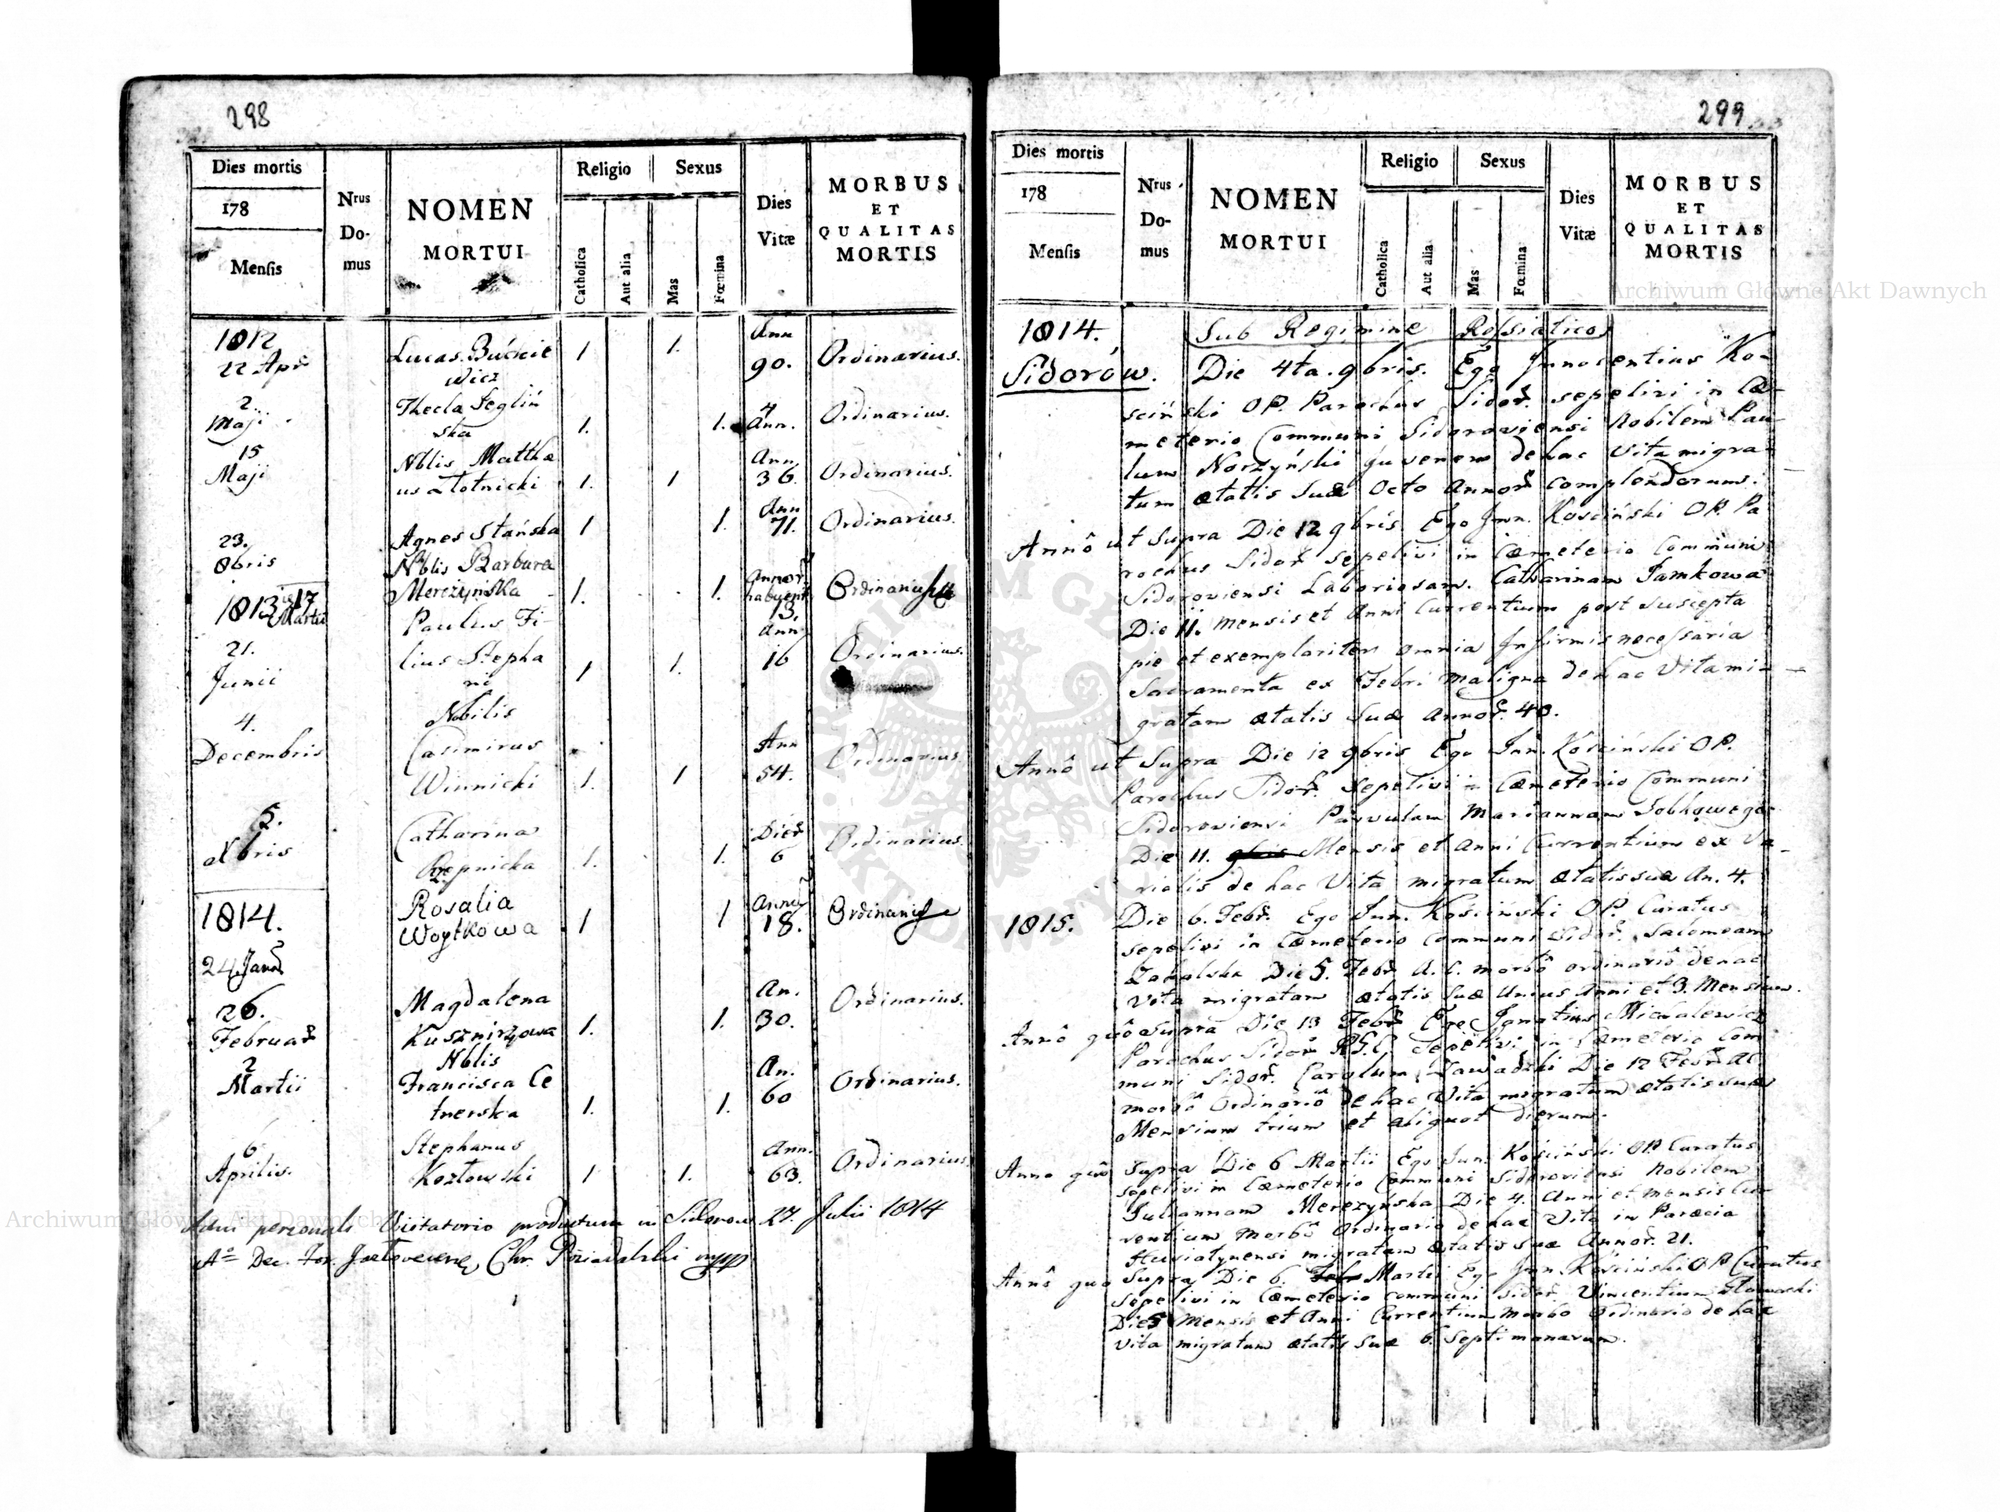 298
Dies mortis
178
Mensis
Nrus Do-mus
NOMEN
MORTUI
Religio
Catholica
Aut alia
Sexus
Mas
Fœmina
Dies
Vitæ
MORBUS
ET
QUALITAS
MORTIS
1812
22 Apr
Lucas
wicz
1
1.
Ann
90.
Ordinarius.
2.
Maji
Thecla
ska
1.
1.
4
Ann.
Ordinarius.
15
Maji
Nblis Matthæ
us Złotnicki
1.
1
Ann
36.
Ordinarius.
23.
8bris
Agnes Stańska
1
1.
Ann
71.
Ordinarius.
1813 17 Martii
Nblis Barbara
Merczyńska
1.
1.
Annor
13.
21.
Junii
Paulus Fi-
lius Stepha
ni
1
1.
Ann
16
Ordinarius.
4.
Decembris
Nobilis
Casimirus
Winnicki
1.
1
Ann
54.
Ordinarius
5.
Xbris
Catharina
Rzepnicka
1.
1.
Dier
6
Ordinarius.
1814.
24 Janr
Rosalia
Woytkowa
1
1
Annor
18.
26.
Februar
Magdalena
Kusznirzowa
1.
1.
An.
30.
Ordinarius.
2
Martii
Nblis
Francisca Ce
tnerska
1.
1.
An.
60
Ordinarius.
6
Aprilis.
Stephanus
Kozłowski
1
1.
Ann.
63.
Ordinarius.
personali Visitatorio productum in Sidorow 27. Julii 1814
Dec. For. Chr. mpp
299
Dies mortis
178
Mensis
Nrus Do-mus
NOMEN
MORTUI
Religio
Catholica
Aut alia
Sexus
Mas
Fœmina
Dies
Vitæ
MORBUS
ET
QUALITAS
MORTIS
1814. Sub Regimine Rossiatico
Sidorów. Die 4ta. 9bris. Ego Innocentius Ko-
sciński OP. Parochus Sidor. sepelivi in Cæ-
meterio Communi Sidoroviensi Nobilem Pau-
lum Norzyński juvenem de hac vita migra-
tum ætatis suæ Octo Annor complendorum.
Annô ut Supra Die 12 9bris Ego Inn. Kosciński OP. Pa
rochus Sidor sepelivi in Cæmeterio Communi
Sidoroviensi Laboriosam Catharinam Jamkowa
Die 11. mensis et Anni Currentium post suscepta
pie et exemplariter omnia Infirmis necessaria
Sacramenta ex Febri maligna de hac Vita mi-
gratam ætatis suæ Annor. 40.
Annô ut Supra Die 12 9bris Ego Inn. Kosciński OP.
Parochus Sidor. Sepelivi in Cæmeterio Communi
Sidoroviensi Parvulam Mariannam
Die 11. 9bris Mensis et Anni Currentium ex Va-
riolis de hac Vita migratum ætatis suæ An. 4.
1815. Die 6. Febr. Ego Inn. Kosciński OP. Curatus
sepelivi in Cæmeterio Communi Sidor. Salomeam
Die 5. Febr. A. C. morbô ordinariô de hac
Vita migratam ætatis suæ Unius Anni et 3. Mensium.
Annô quô Supra Die 13 Febr Ego Ignatius Michalewicz
Parochus Sidor Sepelivi in Cæmeterio Com
muni Sidor. Carolum Zawadzki Die 12 Febr
morbô Ordinariô de hac Vita migratum ætatis suæ
Mensium trium et aliquot dierum.
Anno quô Supra Die 6 Martii Ego Inn. Kosciński OP. Curatus
Sepelivi in Cæmeterio Communi Sidoroviensi Nobilem
Juliannam Merczyńska Die 4. Anni et mensis Cur
rentium morbô Ordinario de hac Vita in Paræcia
Husiatynensi migratam ætatis suæ Annor. 21.
Annô quo Supra Die 6. Febr Martii Ego Inn. Kosciński OP Curatus
Sepelivi in Cæmeterio communi Sidor. Vincentium
Die 5 Mensis et Anni Currentium morbo Ordinario de hac
vita migratum ætatis suæ 6. Septimanarum.
Archiwum Główne Akt Dawnych
Archiwum Główne Akt Dawnych
ARCHIWUM GŁÓWNE AKT DAWNYCH